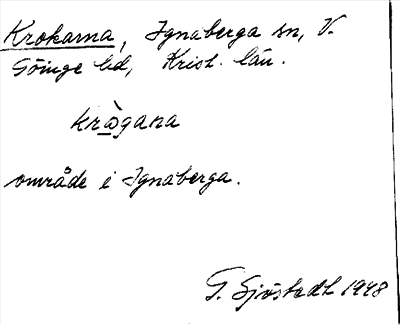 Krokarna, Ignaberga sn, V.
Göinge hd, Krist. län.
kràgana
område i Ignaberga.
G. Sjöstedt 1948